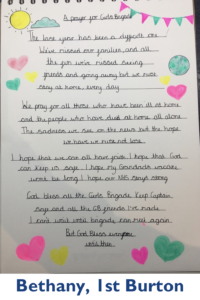 A prayer for Girls Brigade
The last year has been a difficult one
We've missed our families, and all
the fun we've missed seeing
friends and going away but we must
stay at home, every day
We pray for all those who have been ill at home
and the people who have died at home all alone
The sadness we see on the news but the hope
we have we must not lose
I hope that we can all have fun. I hope that God
can keep us safe I hope my Grandads vaccine
wont be long I hope our NHS stays strong
God bless all the Girls Brigade Keep Captain
safe and all the GB friends I've made
I can't wait until brigade can meet again
But God Bless everyone
until then
Bethany, 1st Burton